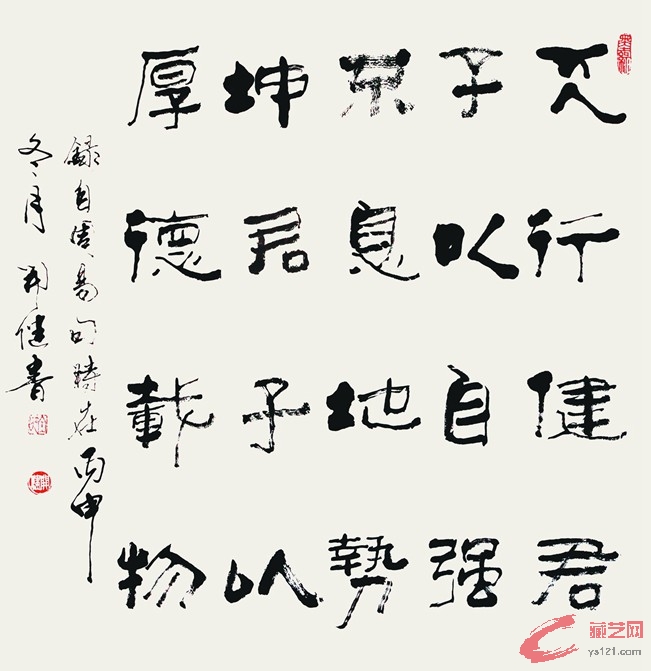 天行健君
子以自强
不息地勢
坤君子以
厚德載物
錄自周易句時在丙申
冬月開健書
藏艺网
ys121.com